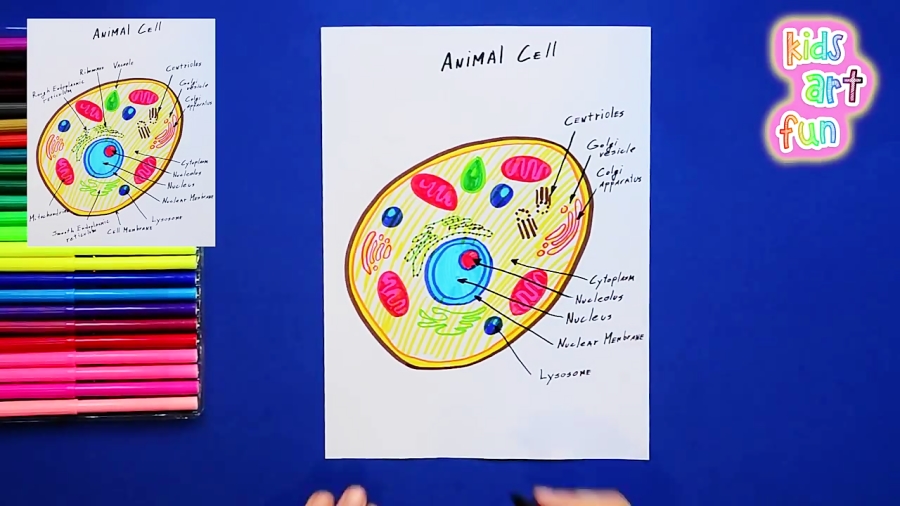 ANIMAL CELL
Ribosomes
Vacuole
Centrioles
Rough Endoplasmic
reticulum
Golgi
vesicle
Golgi
apparatus
Cytoplasm
Nucleolus
Nucleus
Nuclear Membrane
Mitochondrion
Lysosome
Smooth Endoplasmic
reticulum
Cell Membrane
ANIMAL CELL
Centrioles
Golgi
vesicle
Golgi
apparatus
Cytoplasm
Nucleolus
Nucleus
Nuclear Membrane
Lysosome
kids
art
fun